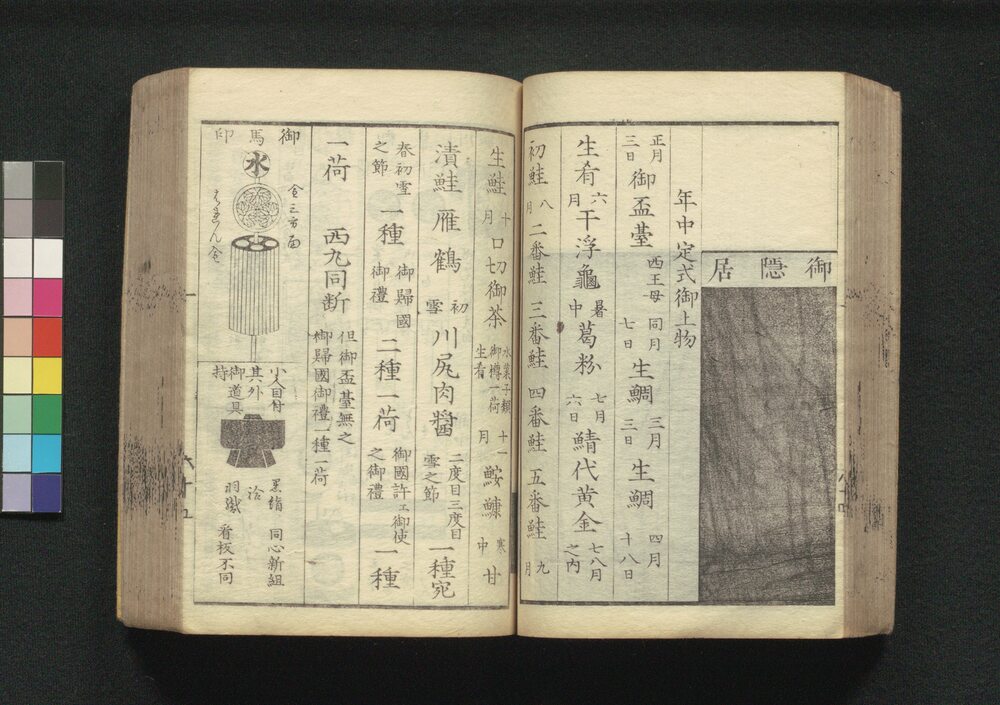 御隠居
年中定式御上物
正月三日 御盃臺 西王母 同月七日 生鯛 三月三日 生鯛 四月十八日
生肴 六月 干浮龜 暑中 葛粉 七月六日 鯖代黄金 七八月之内
初鮭 八月 二番鮭 三番鮭 四番鮭 五番鮭 九月
生鮭 十月 口切御茶 水菓子類 御樽一荷 生肴 十一月 鮟鱇 寒中 甘
漬鮭 雁 鶴 初雪 川尻肉醬 二度目三度目雪之節 一種宛
春初雪之節 一種 御歸國御禮 二種一荷 御國許エ御使之御禮 一種
一荷 西丸同断 但御盃臺無之御歸國御禮一種一荷
御馬印
水
金三方面
小人目付
其外
御道具持
黒絹
羽織
同心新組
看板不同
六十五